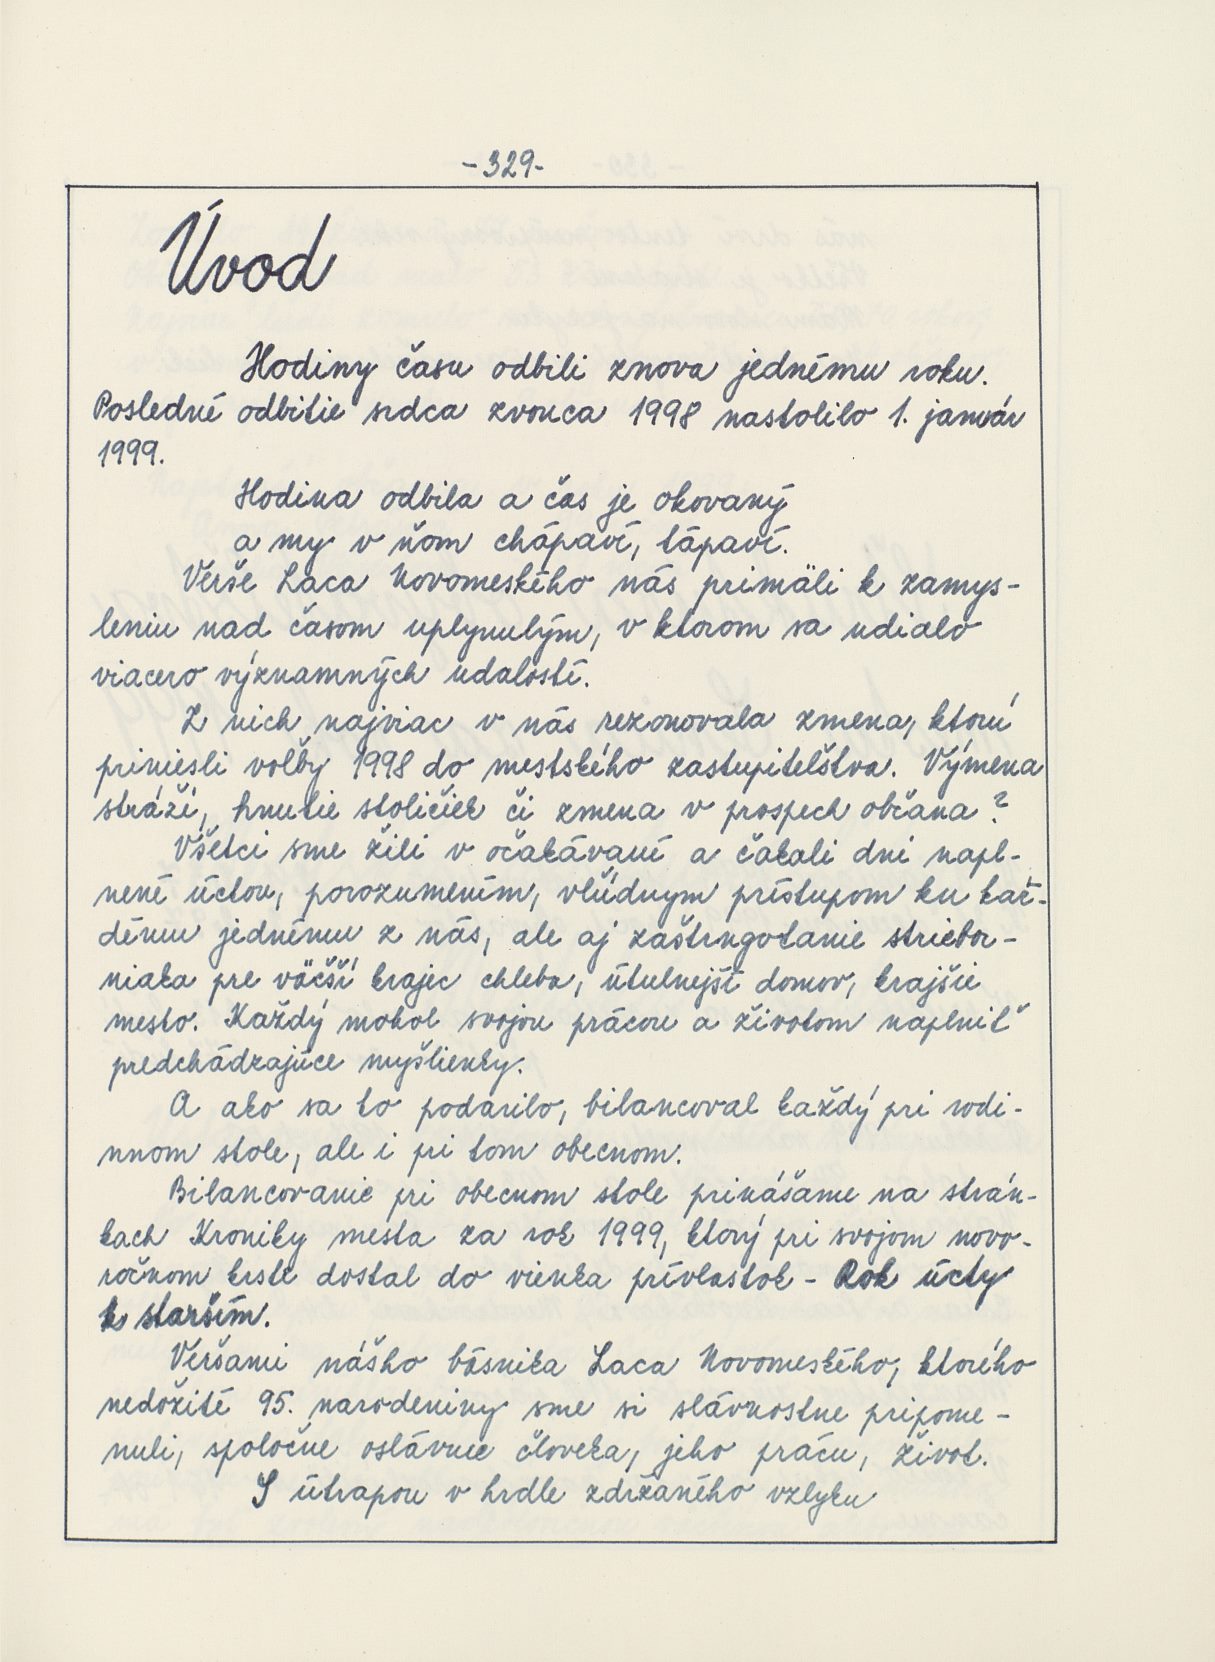 -329-
Úvod
Hodiny času odbili znova jednému roku.
Posledné odbitie srdca zvonca 1998 nastolilo 1. január
1999.
Hodina odbila a čas je okovaný
a my v ňom chápaví, tápaví.
Verše Laca Novomeského nás primäli k zamys-
leniu nad časom uplynulým, v ktorom sa udialo
viacero významných udalostí.
Z nich najviac v nás rezonovala zmena, ktorú
priniesli voľby 1998 do mestského zastupiteľstva. Výmena
stráží, hnutie stoličiek či zmena v prospech občana?
Všetci sme žili v očakávaní a čakali dni napl-
nené úctou, porozumením, vľúdnym prístupom ku kaž-
dému jednému z nás, ale aj zaštrngotanie striebor-
niaka pre väčší krajec chleba, útulnejší domov, krajšie
mesto. Každý mohol svojou prácou a životom naplniť
predchádzajúce myšlienky.
A ako sa to podarilo, bilancoval každý pri rodi-
nnom stole, ale i pri tom obecnom.
Bilancovanie pri obecnom stole prinášame na strán-
kach Kroniky mesta za rok 1999, ktorý pri svojom novo-
ročnom krste dostal do vienka prívlastok - Rok úcty
k starším.
Veršami nášho básnika Laca Novomeského, ktorého
nedožité 95. narodeniny sme si slávnostne pripome-
nuli, spoločne oslávme človeka, jeho prácu, život.
S útrapou v hrdle zdržaného vzlyku